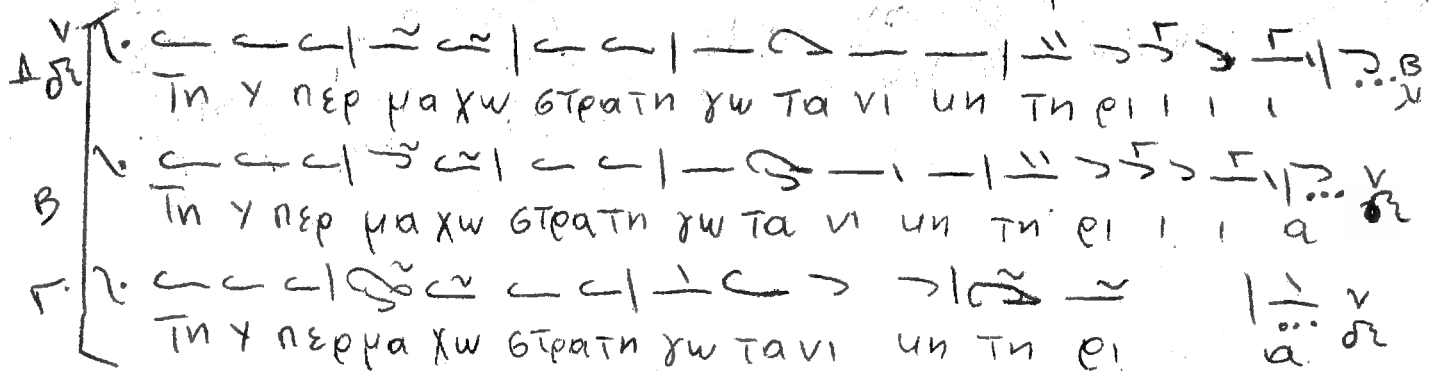 Τη υ περ μα χω στρα τη γω τα νι κη τη ρι ι ι ι
Β Τη υ περ μα χω στρα τη γω τα νι κη τη ρι ι ι α
Γ Τη υ περ μα χω στρα τη γω τα νι κη τη ρι α